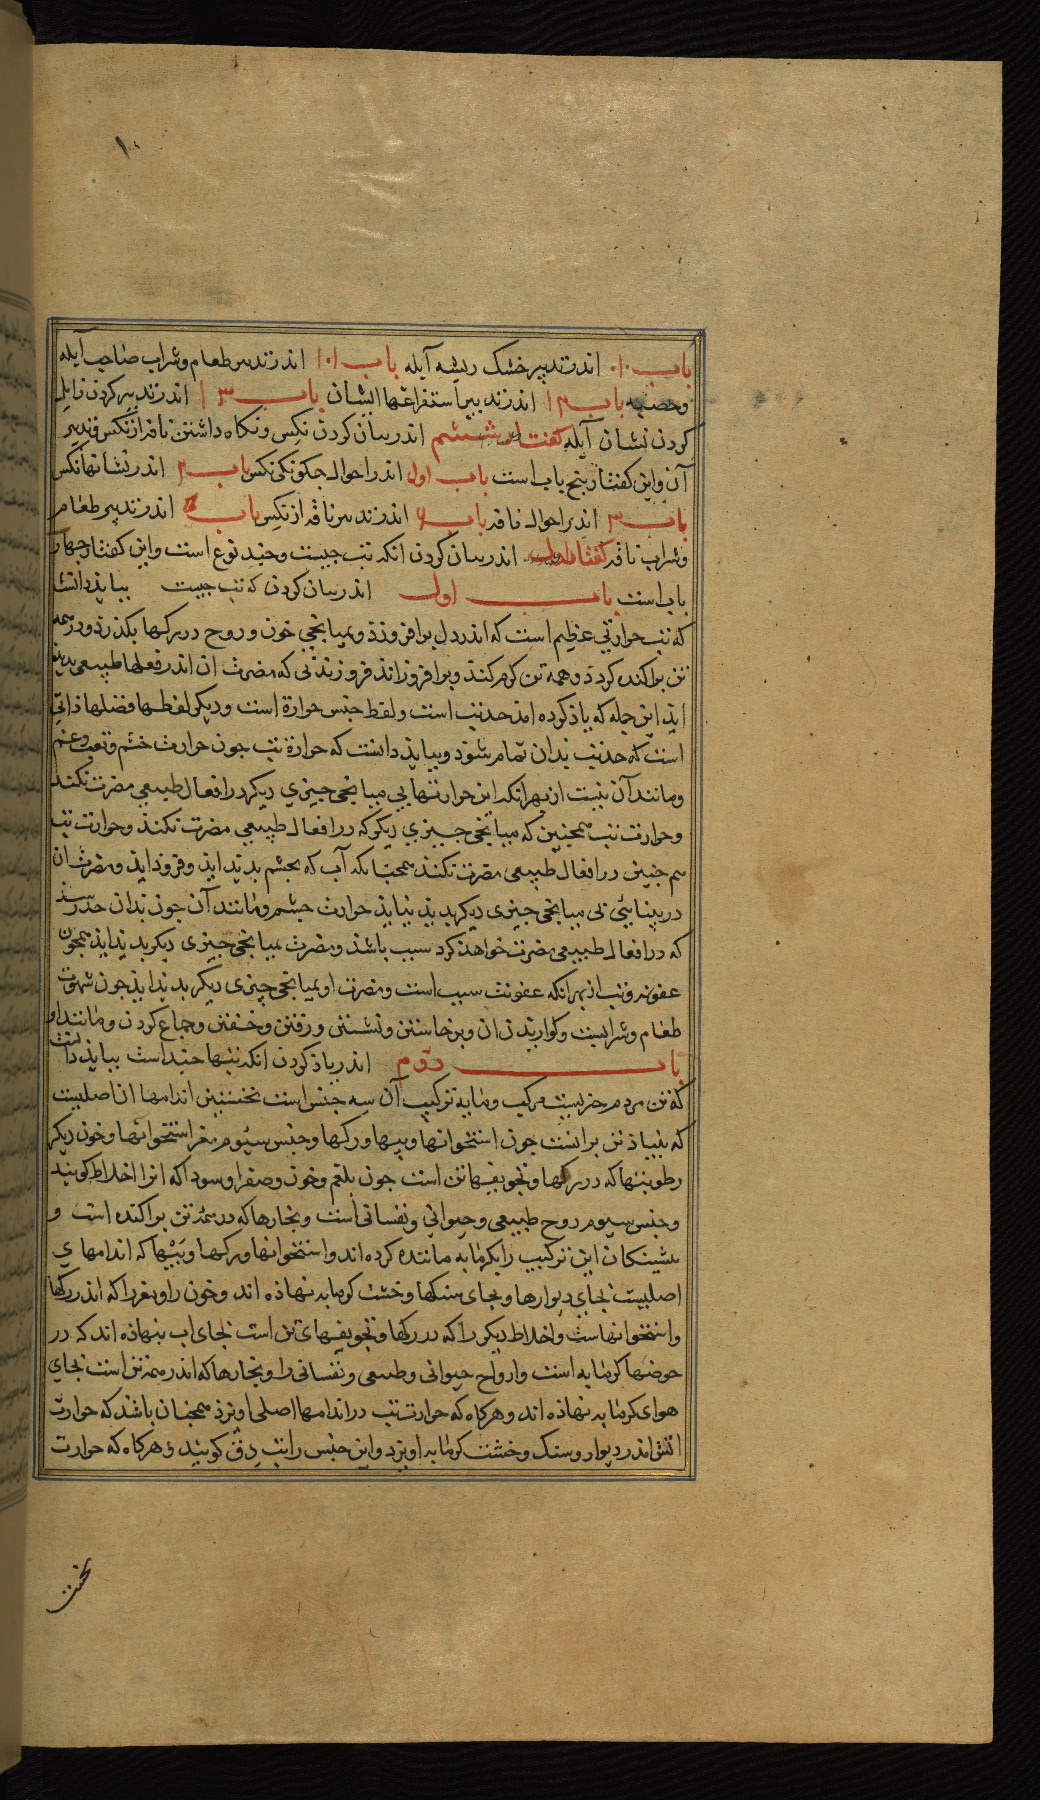 باب ۱۰ اندر تدبیر خشک ریشه آبله باب ۱۱ اندر تدبیر طعام و شراب صاحب آبله
و حصبه باب ۱۲ اندر تدبیر استفراغها ایشان باب ۱۳ اندر تدبیر کردن زایل
کردن نشان آبله کفتار ششم اندر بیان کردن نکس و نکاه داشتن ناقه از نکس و تدبیر
آن و این کفتار پنج باب است باب اول اندر احوال جکونکی نکس باب ۲ اندر نشانها نکس
باب ۳ اندر احوال ناقه باب ۴ اندر تدبیر ناقه از نکس باب ۵ اندر تدبیر طعام
و شراب ناقه کفتار اول اندر بیان کردن انکه تب جیست و جند نوع است و این کفتار جهار
باب است باب اول اندر بیان کردن که تب جیست ببایذ دانست
که تب حرارتی غریب است که اندر دل برافروزذ و بمیانجی خون و روح در رکها بکذرذ و در همه
تن براکنده کردذ و همه تن کرم کنذ و برافروزانذ فروزیدنی که مضرت ان اندر فعلها طبیعی بدیذ
ایذ این جمله که یاذ کرده امذ حد تب است و لفظ جنس حرارة است و دیکر لفظها فصلها ذاتی
است که حد تب بدان تمام شوذ و ببایذ دانست که حرارة تب جون حرارت خشم و تعب و غم
و مانند آن نیست از بهر انکه این حرارتها بی میانجی جیزی دیکر در افعال طبیعی مضرت نکند
و حرارت تب همجنین که میانجی جیزی دیکر که در افعال طبیعی مضرت نکنذ و حرارت تب
هم جنین در افعال طبیعی مضرت نکنذ همجنانکه آب که بجشم بدید ایذ و فروذ ایذ و مضرت ان
در بینائی بی میانجی جیزی دیکر بدیذ نیایذ حرارت جشم و مانند آن جون بدان حد رسذ
که در افعال طبیعی مضرت خواهذ کرد سبب باشذ و مضرت بمیانجی جیزی دیکر بدید ایذ همجون
عفونه و تب از بهر انکه عفونت سبب است و مضرت او بمیانجی جیزی دیکر بدید ایذ جون شهوت
طعام و شرابست و کواریدن ان و برخاستن و نشستن و رفتن و خفتن و جماع کردن و مانند او
باب دوم اندر یاذ کردن انکه تبها جند است ببایذ دانست
که تن مردم جزیست مرکب و مایه ترکیب آن سه جنس است نخستین اندامها اصلیست
که بنیاذ تن برانست جون استخوانها و پیها و رکها و جنس سیوم مغز استخوانها و خون دیکر
رطوبتها که در رکها و تجویفها تن است جون بلغم و خون و صفرا و سودا که انرا اخلاط کویند
و جنس سیوم روح طبیعی و حیوانی و نفسانی است و بخارها که در همه تن براکنده است و
بشینکان این ترکیب را بکرمابه مانده کرده اند و استخوانها و رکها و پیها که اندامهای
اصلیست بجای دیوارها و بجای سنکها و خشت کرمابه بنهاذه اند و خون را و مغز را که اندر رکها
و استخوانهاست و اخلاط دیکر را که در رکها و تجویفهای تن است بجای اب بنهاذه اند که در
حوضها کرمابه است و ارواح حیوانی و طبیعی و نفسانی را و بخارها که اندر همه تن است بجای
هوای کرمابه بنهاذه اند و هرکاه که حرارت تب در اندامها اصلی اویزذ همجنان باشذ که حرارت
اتش اندر دیوار و سنک و خشت کرمابه اویزذ و این جنس را تب دق کویند و هرکاه که حرارت
نخست